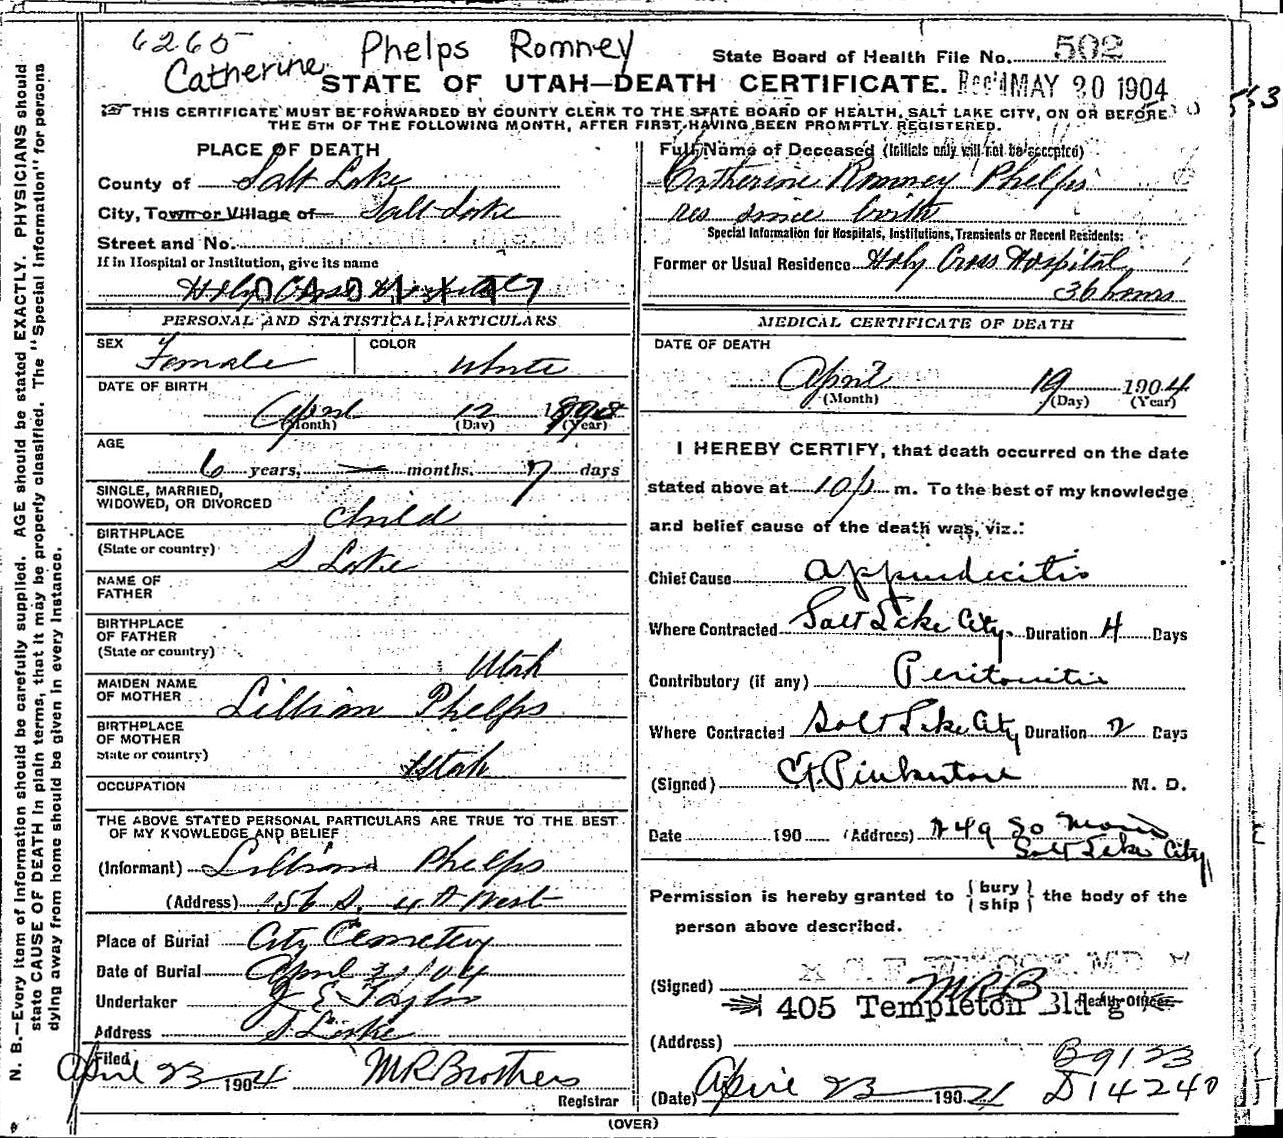 6265 Phelps Romney
Catherine
State Board of Health File No. 502
STATE OF UTAH—DEATH CERTIFICATE. Rec'd MAY 20 1904
THIS CERTIFICATE MUST BE FORWARDED BY COUNTY CLERK TO THE STATE BOARD OF HEALTH, SALT LAKE CITY, ON OR BEFORE
THE 5TH OF THE FOLLOWING MONTH, AFTER FIRST HAVING BEEN PROMPTLY REGISTERED.
553
N. B.—Every item of information should be carefully supplied. AGE should be stated EXACTLY. PHYSICIANS should
state CAUSE OF DEATH in plain terms, that it may be properly classified. The "Special Information" for persons
dying away from home should be given in every instance.
PLACE OF DEATH
County of Salt Lake
City, Town or Village of Salt Lake
Street and No.
If in Hospital or Institution, give its name
Holy Cross Hospital
PERSONAL AND STATISTICAL PARTICULARS
SEX Female COLOR White
DATE OF BIRTH
April 12 1898
(Month) (Day) (Year)
AGE
6 years, — months. 7 days
SINGLE, MARRIED,
WIDOWED, OR DIVORCED Child
BIRTHPLACE
(State or country) S Lake
NAME OF
FATHER
BIRTHPLACE
OF FATHER
(State or country) Utah
MAIDEN NAME
OF MOTHER Lillian Phelps
BIRTHPLACE
OF MOTHER
State or country) Utah
OCCUPATION
THE ABOVE STATED PERSONAL PARTICULARS ARE TRUE TO THE BEST
OF MY KNOWLEDGE AND BELIEF
(Informant) Lillian Phelps
(Address) 156 S. 4th West
Place of Burial City Cemetery
Date of Burial April 21/04
Undertaker J E Taylor
Address S Lake
Filed
April 23 1904 M R Brothers
Registrar
Full Name of Deceased (Initials only will not be accepted)
Catherine Romney Phelps
res since birth
Special Information for Hospitals, Institutions, Transients or Recent Residents:
Former or Usual Residence Holy Cross Hospital
36 hours
MEDICAL CERTIFICATE OF DEATH
DATE OF DEATH
April 19 1904
(Month) (Day) (Year)
I HEREBY CERTIFY, that death occurred on the date
stated above at 10 p m. To the best of my knowledge
and belief cause of the death was, viz.:
Chief Cause Appendicitis
Where Contracted Salt Lake City Duration 4 Days
Contributory (if any) Peritonitis
Where Contracted Salt Lake City Duration 2 Days
(Signed) Pinkerton M. D.
Date 190 (Address) 249 So Main
Salt Lake City
Permission is hereby granted to { bury ship } the body of the
person above described.
(Signed) MRB
405 Templeton Bldg Health Officer
(Address)
B9123
(Date) April 23 1904 D14240
(OVER)